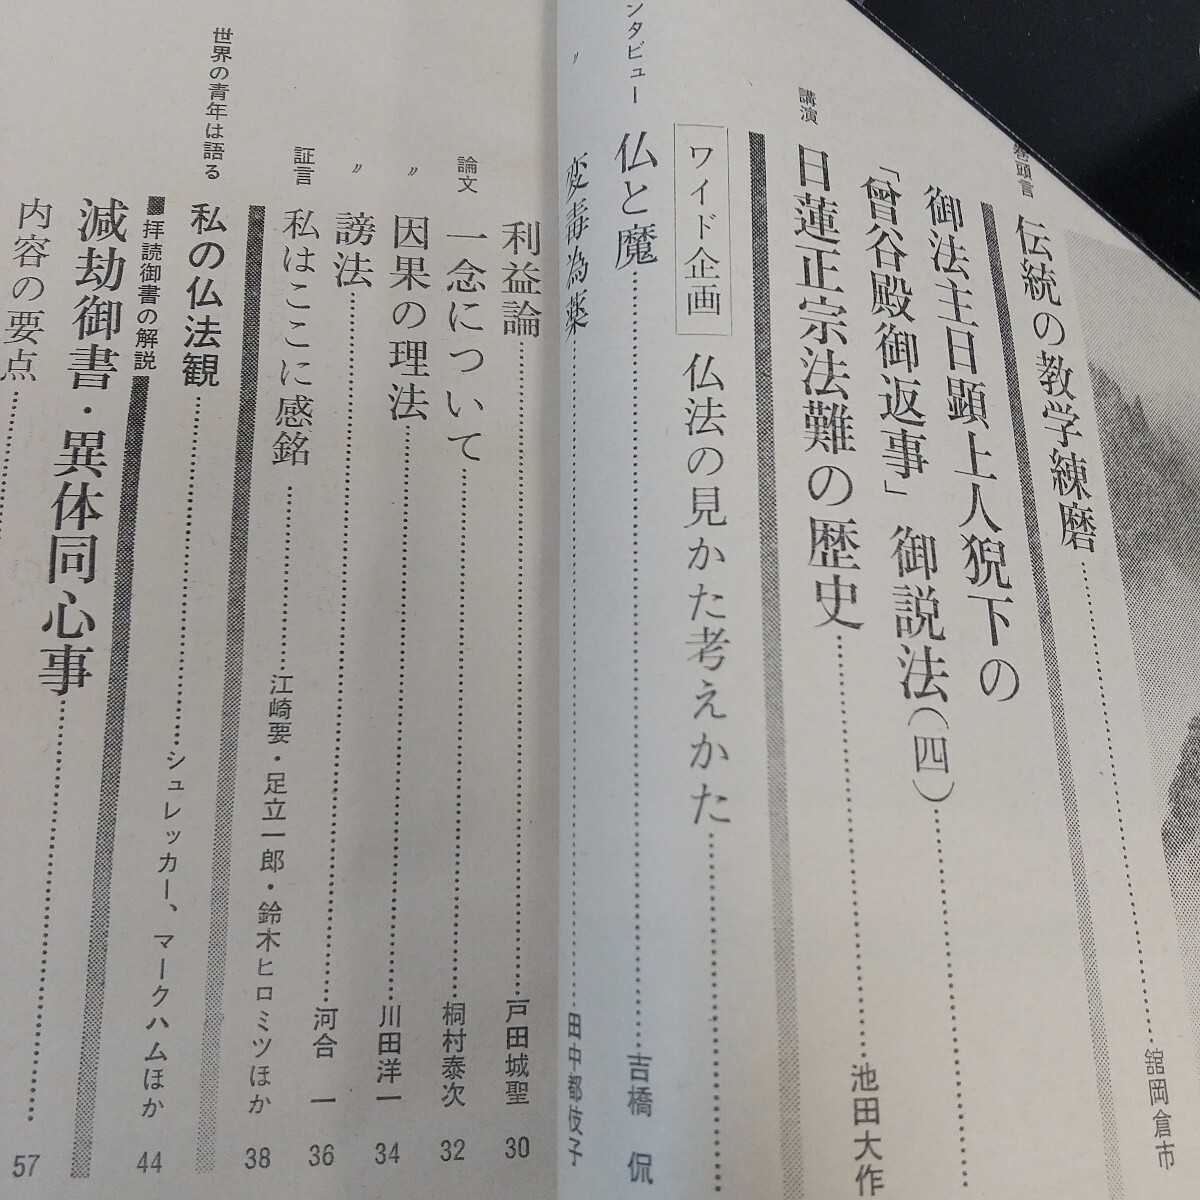 巻頭言 伝統の教学練磨 舘岡倉市
御法主日顕上人猊下の
「曾谷殿御返事」御説法(四)
講演 日蓮正宗法難の歴史 池田大作
ワイド企画 仏法の見かた考えかた
ンタビュー 仏と魔 吉橋 侃
〃 変毒為薬 田中都伎子
利益論 戸田城聖 30
論文 一念について 桐村泰次 32
〃 因果の理法 川田洋一 34
〃 謗法 河合 一 36
証言 私はここに感銘 江崎要・足立一郎・鈴木ヒロミツほか 38
世界の青年は語る 私の仏法観 シュレッカー、マークハムほか 44
拝読御書の解説
減劫御書・異体同心事
内容の要点 57